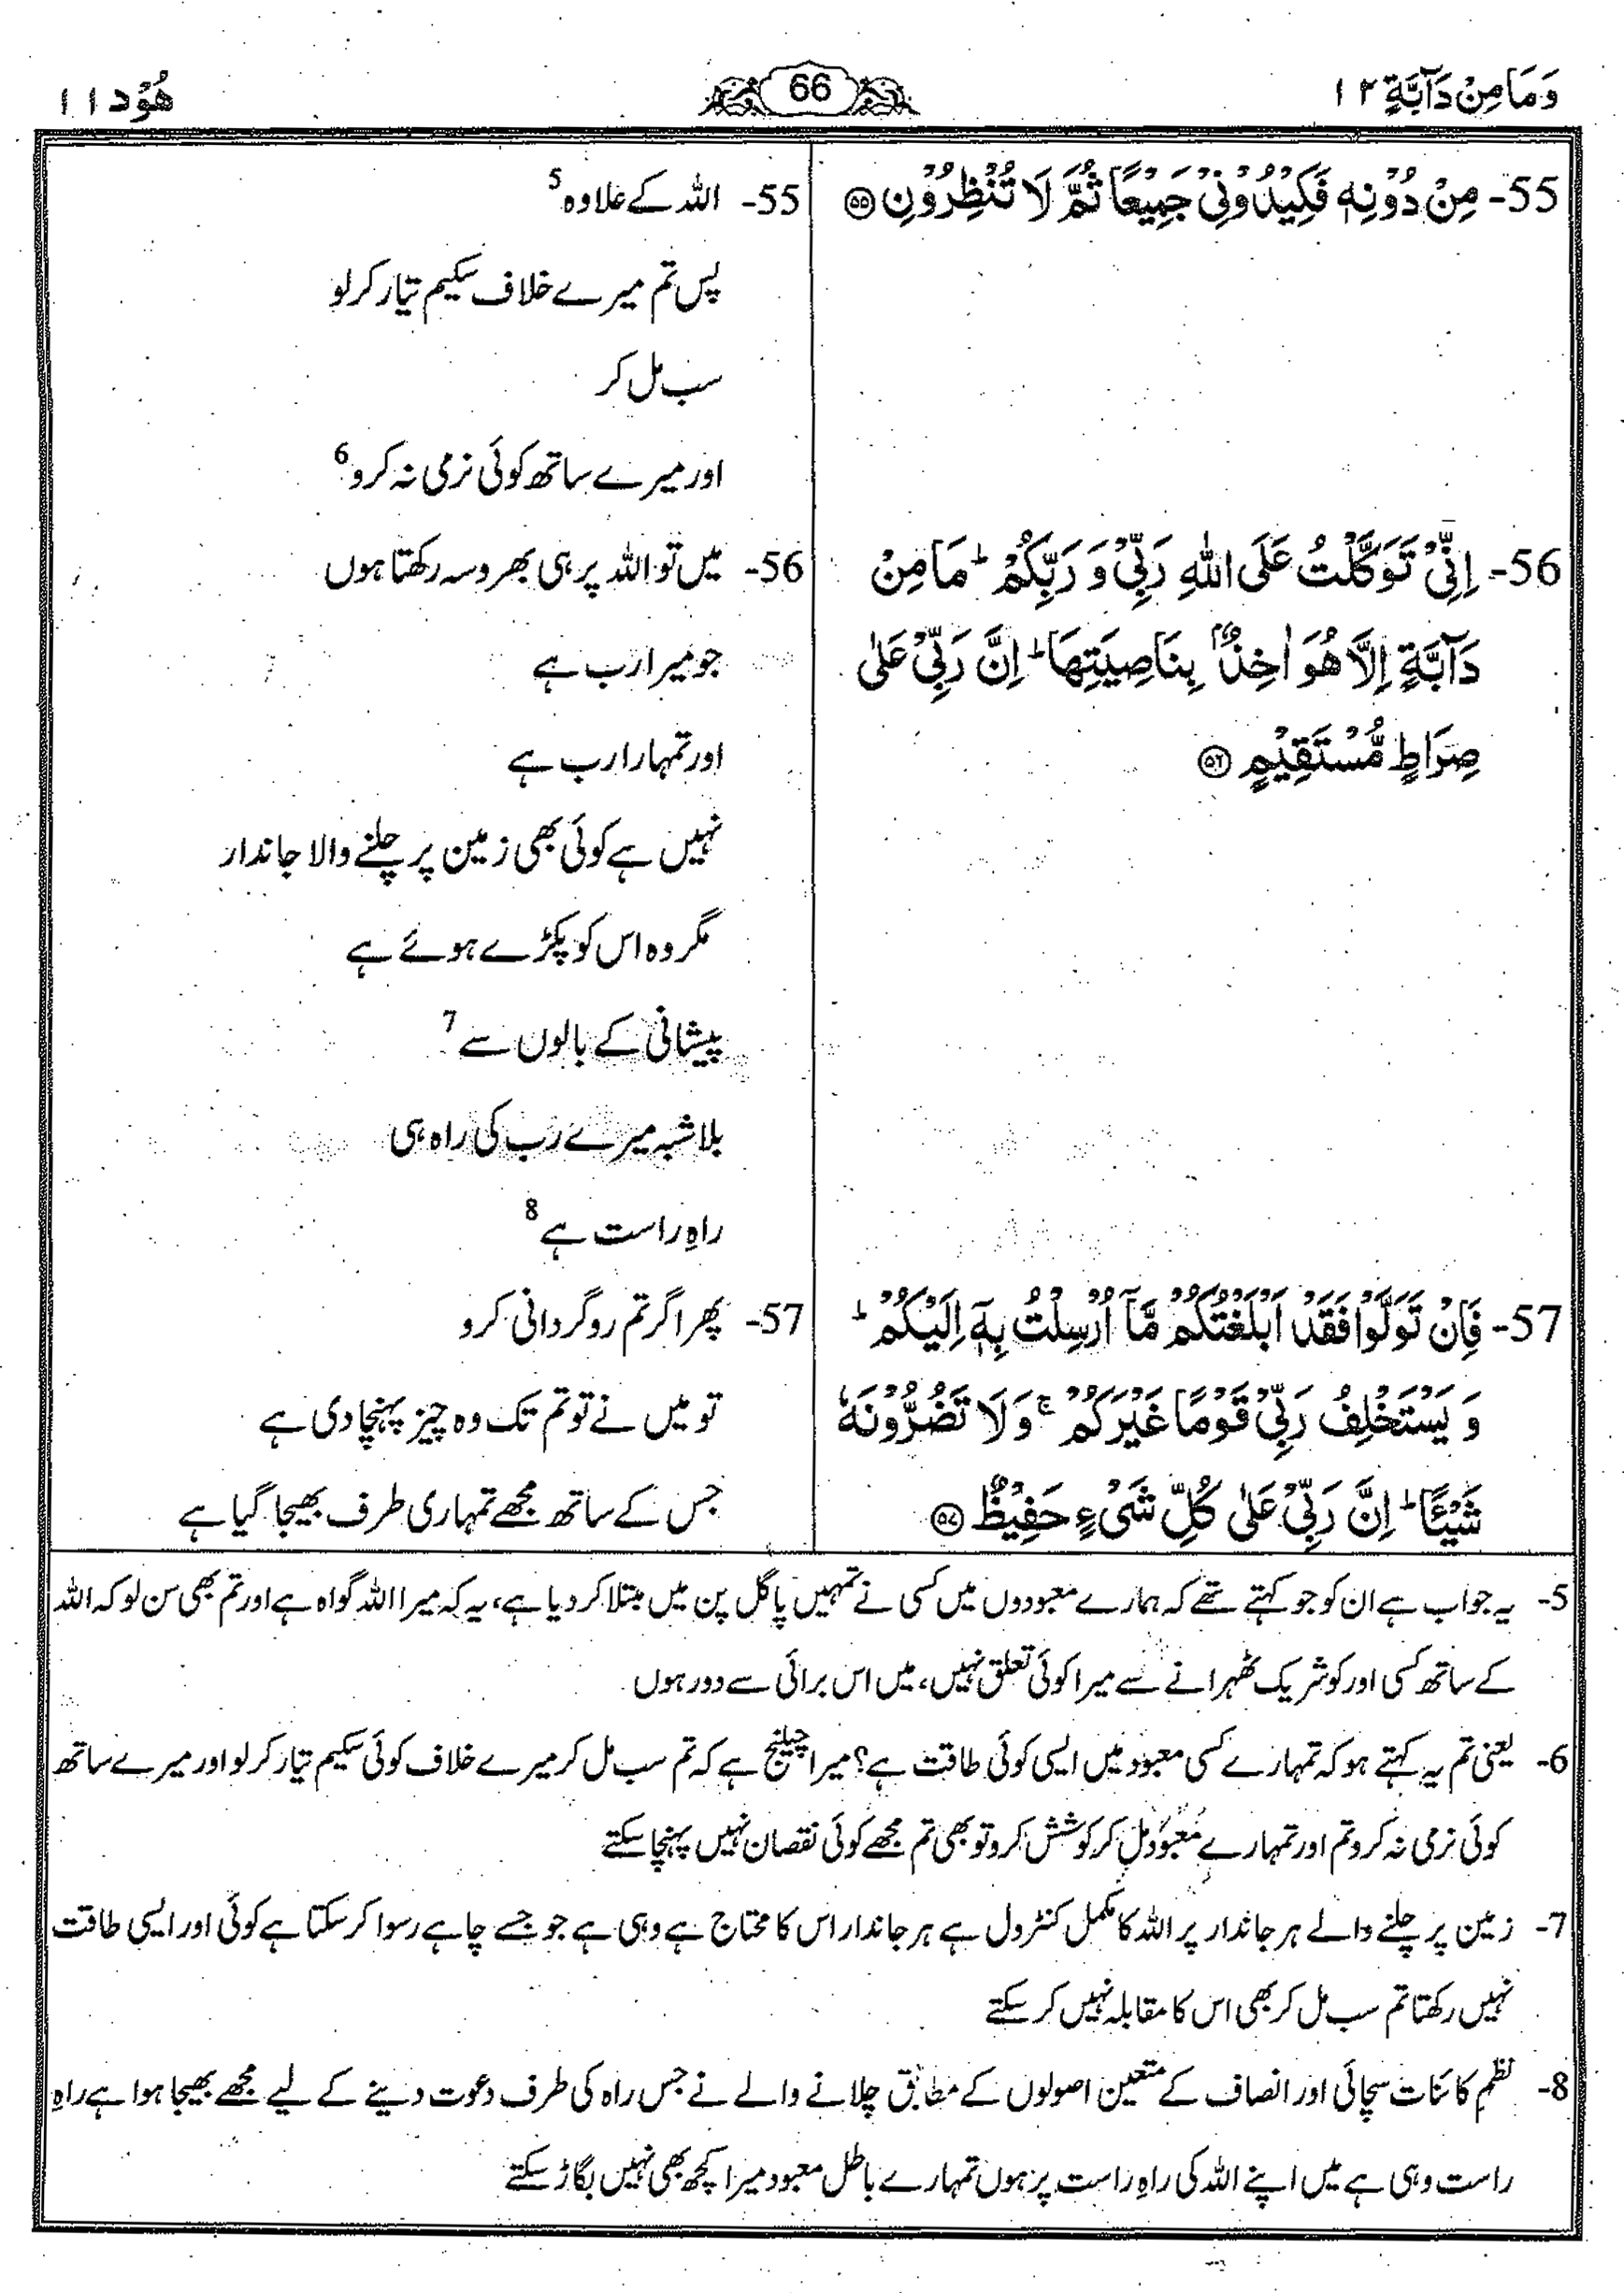 وَمَا مِنْ دَآبَّةٍ ١٢
66
هُوْد ١١
55- مِنْ دُوْنِهٖ فَكِيْدُوْنِيْ جَمِيْعًا ثُمَّ لَا تُنْظِرُوْنِ ﴿٥٥﴾
56- اِنِّيْ تَوَكَّلْتُ عَلَى اللّٰهِ رَبِّيْ وَ رَبِّكُمْ ؕ مَا مِنْ
دَآبَّةٍ اِلَّا هُوَ اٰخِذٌۢ بِنَاصِيَتِهَا ؕ اِنَّ رَبِّيْ عَلٰى
صِرَاطٍ مُّسْتَقِيْمٍ ﴿٥٦﴾
57- فَاِنْ تَوَلَّوْا فَقَدْ اَبْلَغْتُكُمْ مَّاۤ اُرْسِلْتُ بِهٖۤ اِلَيْكُمْ ؕ
وَ يَسْتَخْلِفُ رَبِّيْ قَوْمًا غَيْرَكُمْ ۚ وَلَا تَضُرُّوْنَهٗ
شَيْـًٔا ؕ اِنَّ رَبِّيْ عَلٰى كُلِّ شَيْءٍ حَفِيْظٌ ﴿٥٧﴾
55- اللہ کے علاوہ 5
پس تم میرے خلاف سکیم تیار کر لو
سب مل کر
اور میرے ساتھ کوئی نرمی نہ کرو 6
56- میں تو اللہ پر ہی بھروسہ رکھتا ہوں
جو میرا رب ہے
اور تمہارا رب ہے
نہیں ہے کوئی بھی زمین پر چلنے والا جاندار
مگر وہ اس کو پکڑے ہوئے ہے
پیشانی کے بالوں سے 7
بلاشبہ میرے رب کی راہ ہی
راہِ راست ہے 8
57- پھر اگر تم روگردانی کرو
تو میں نے تو تم تک وہ چیز پہنچا دی ہے
جس کے ساتھ مجھے تمہاری طرف بھیجا گیا ہے
5- یہ جواب ہے ان کو جو کہتے تھے کہ ہمارے معبودوں میں کسی نے تمہیں پاگل پن میں مبتلا کر دیا ہے، یہ کہ میرا اللہ گواہ ہے اور تم بھی سن لو کہ اللہ
کے ساتھ کسی اور کو شریک ٹھہرانے سے میرا کوئی تعلق نہیں، میں اس برائی سے دور ہوں
6- یعنی تم یہ کہتے ہو کہ تمہارے کسی معبود میں ایسی کوئی طاقت ہے؟ میرا چیلنج ہے کہ تم سب مل کر میرے خلاف کوئی سکیم تیار کر لو اور میرے ساتھ
کوئی نرمی نہ کرو تم اور تمہارے معبود مل کر کوشش کرو تو بھی تم مجھے کوئی نقصان نہیں پہنچا سکتے
7- زمین پر چلنے والے ہر جاندار پر اللہ کا مکمل کنٹرول ہے ہر جاندار اس کا محتاج ہے وہی ہے جو جسے چاہے رسوا کر سکتا ہے کوئی اور ایسی طاقت
نہیں رکھتا تم سب مل کر بھی اس کا مقابلہ نہیں کر سکتے
8- نظمِ کائنات سچائی اور انصاف کے متعین اصولوں کے مطابق چلانے والے نے جس راہ کی طرف دعوت دینے کے لیے مجھے بھیجا ہوا ہے راہِ
راست وہی ہے میں اپنے اللہ کی راہِ راست پر ہوں تمہارے باطل معبود میرا کچھ بھی نہیں بگاڑ سکتے